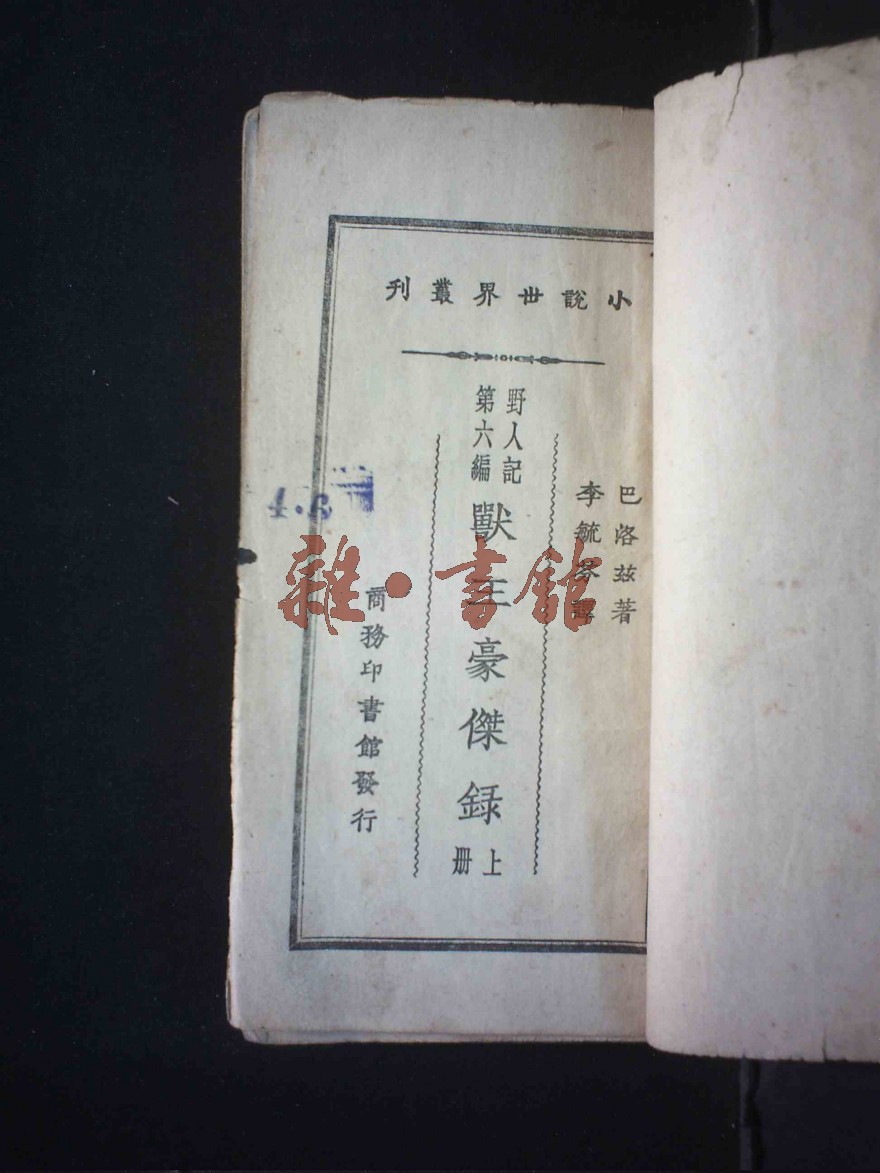 小說世界叢刊
巴洛兹著
李毓芬譯
野人記
第六編
獸王豪傑録
上
册
商務印書館發行
雜·書館